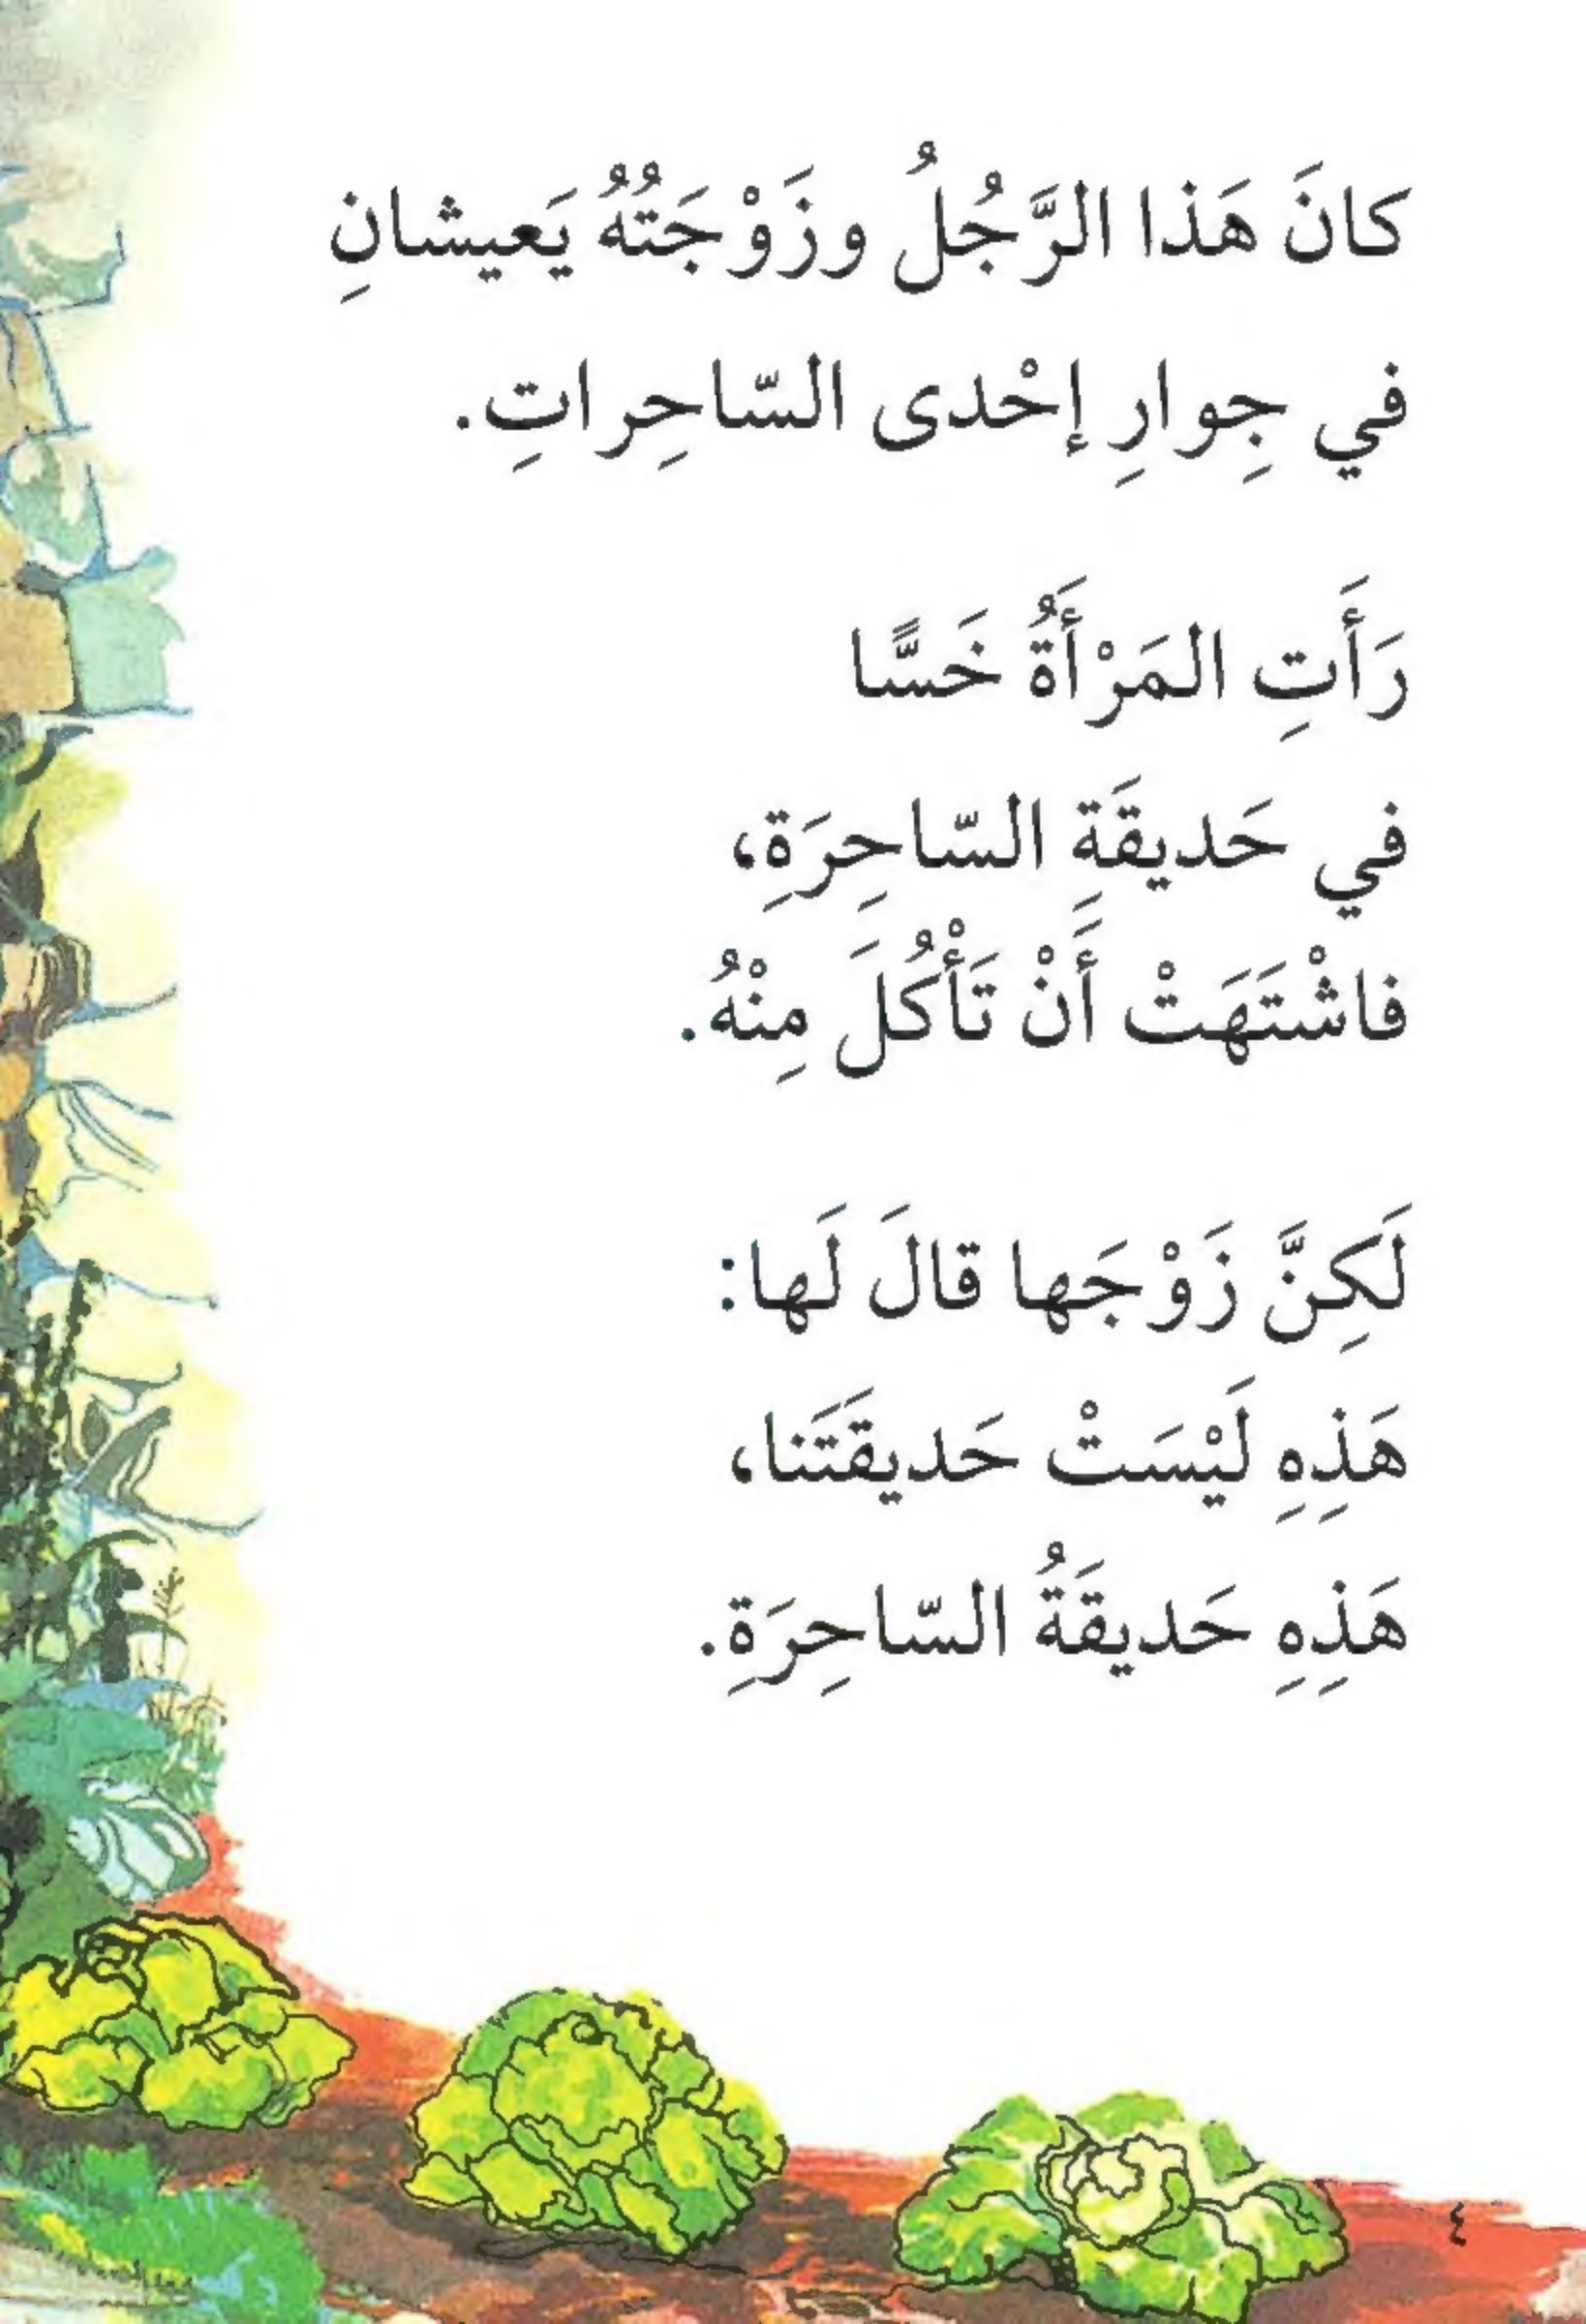 كانَ هَذا الرَّجُلُ وزَوْجَتُهُ يَعيشانِ
في جِوارِ إحْدى السّاحِراتِ.
رَأَتِ المَرْأَةُ خَسًّا
في حَديقَةِ السّاحِرَةِ،
فاشْتَهَتْ أَنْ تَأْكُلَ مِنْهُ.
لَكِنَّ زَوْجَها قالَ لَها:
هَذِهِ لَيْسَتْ حَديقَتَنا،
هَذِهِ حَديقَةُ السّاحِرَةِ.
٤